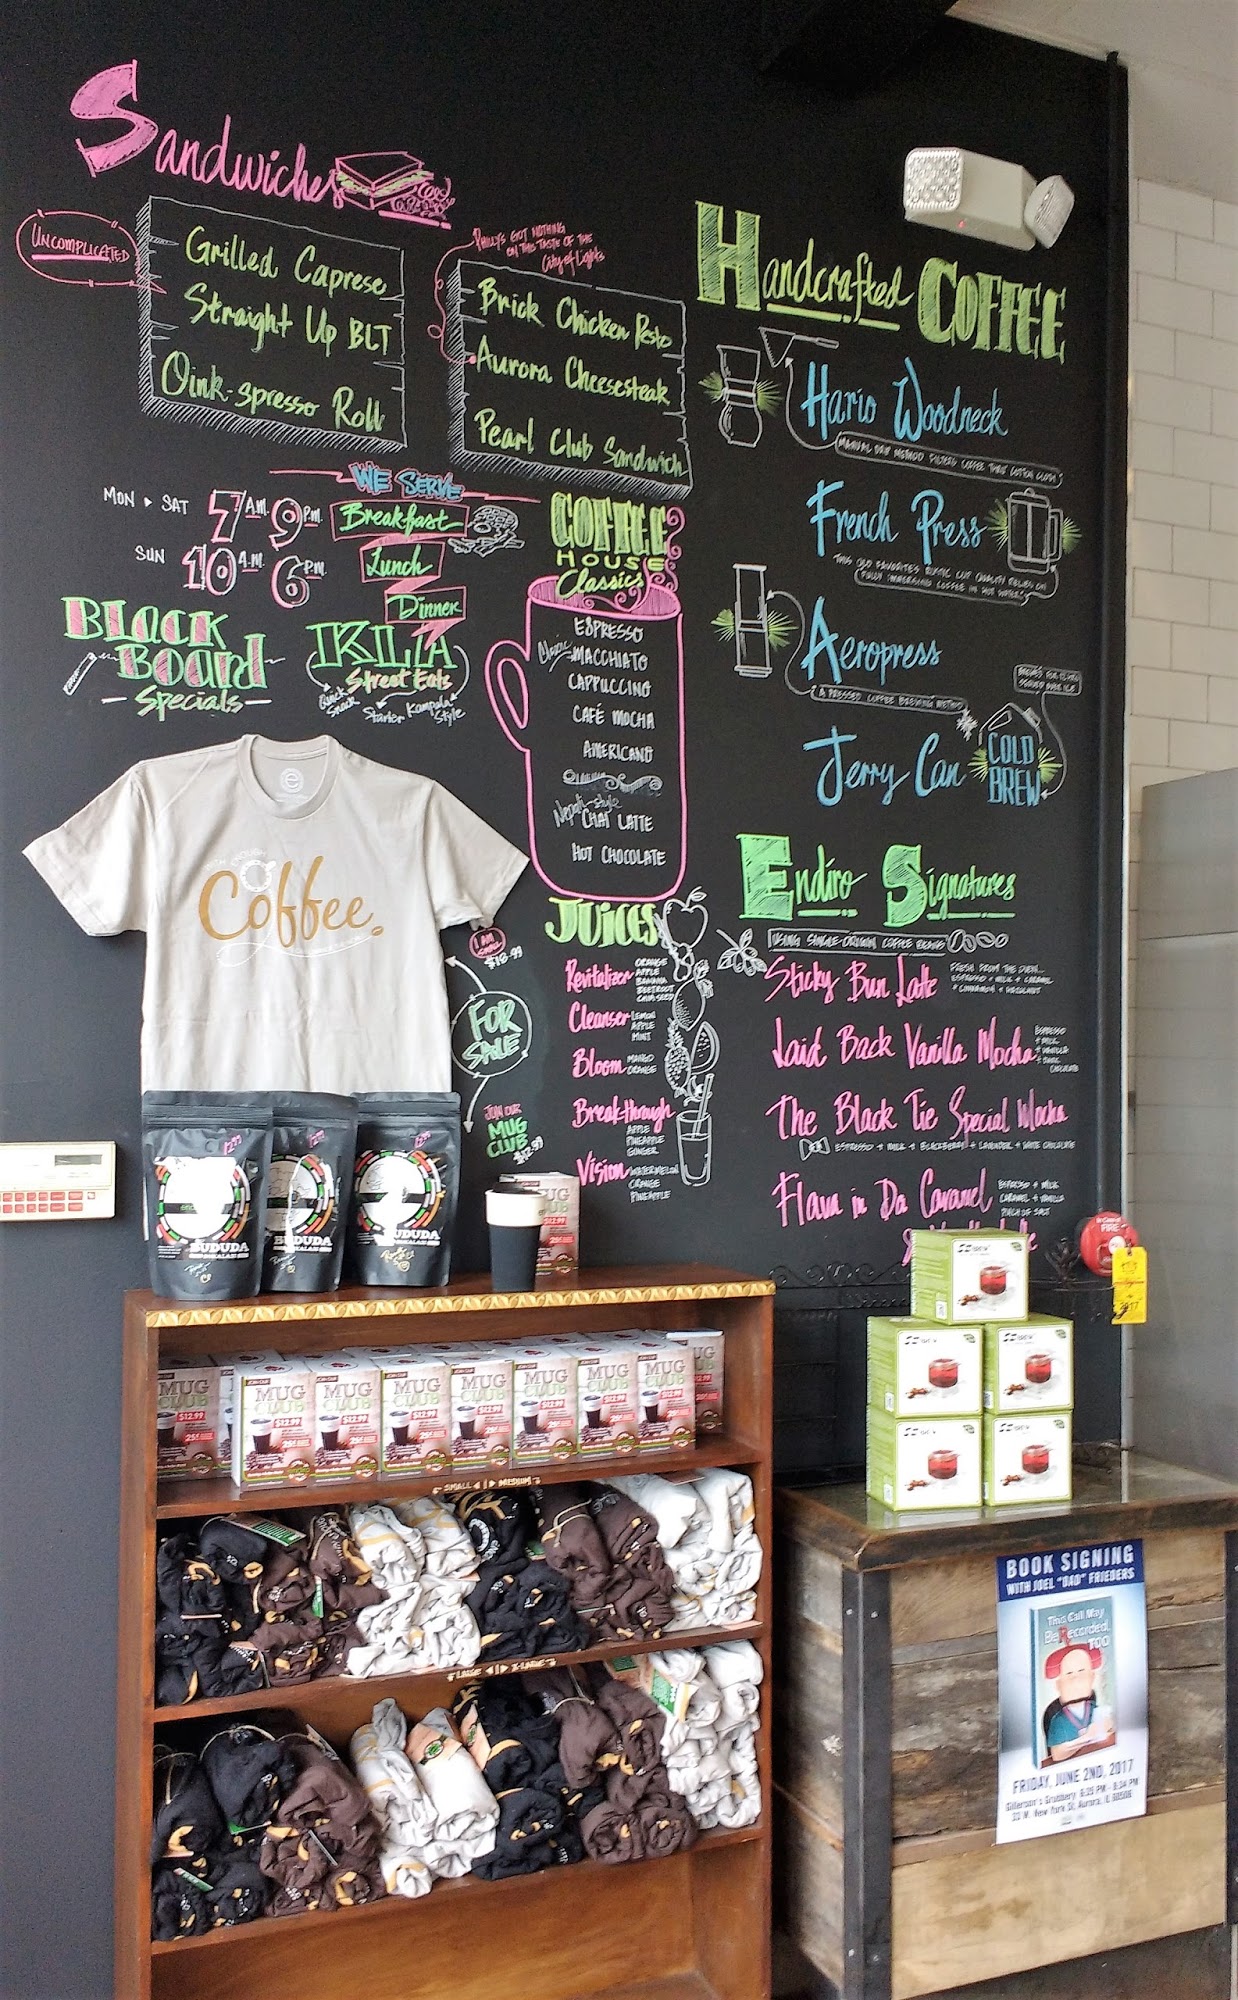 Sandwiches
UNCOMPLICATED
Grilled Caprese
Straight Up BLT
Oink-spresso Roll
PHILLY'S GOT NOTHING
ON THIS TASTE OF THE
City of Lights
Brick Chicken Pesto
Aurora Cheesesteak
Pearl Club Sandwich
MON ▸ SAT 7 A.M. 9 P.M.
SUN 10 A.M. 6 P.M.
WE SERVE
Breakfast
Lunch
Dinner
BLACK
BOARD
Specials
KLA
Street Eats
Quick Snack
Starter
Kampala Style
COFFEE
HOUSE
Classics
ESPRESSO
Classic MACCHIATO
CAPPUCCINO
CAFÉ MOCHA
AMERICANO
Nepali-style
CHAI LATTE
HOT CHOCOLATE
Handcrafted COFFEE
Hario Woodneck
MANUAL DRIP METHOD FILTERS COFFEE THRU COTTON CLOTH
French Press
THIS OLD FAVORITE'S RUSTIC CUP QUALITY RELIES ON
FULLY IMMERSING COFFEE IN HOT WATER
Aeropress
A PRESSED COFFEE BREWING METHOD
SERVED OVER ICE
Jerry Can
COLD
BREW
Endiro Signatures
USING SINGLE-ORIGIN COFFEE BEANS
Sticky Bun Latte
FRESH FROM THE OVEN...
ESPRESSO + MILK + CARAMEL
+ CINNAMON + HAZELNUT
Laid Back Vanilla Mocha
ESPRESSO
+ MILK
+ VANILLA
+ DARK
CHOCOLATE
The Black Tie Special Mocha
ESPRESSO + MILK + BLACKBERRY + LAVENDER + WHITE CHOCOLATE
Flava in Da Caramel
ESPRESSO + MILK
CARAMEL + VANILLA
PINCH OF SALT
JUICES
Revitalizer
ORANGE
APPLE
BANANA
BEETROOT
CHIA SEED
Cleanser
LEMON
APPLE
MINT
Bloom
MANGO
ORANGE
Breakthrough
APPLE
PINEAPPLE
GINGER
Vision
WATERMELON
ORANGE
PINEAPPLE
WITH ENOUGH
Coffee.
I AM
$18.99
FOR
SALE
JOIN OUR
MUG
CLUB
$12.99
12.99
12.99
12.99
BUDUDA
BUDUDA
BUDUDA
JOIN OUR
MUG
CLUB
$12.99
25¢
SMALL ◂ | ▸ MEDIUM
LARGE ◂ | ▸ X-LARGE
BREW
BREW
BREW
BREW
BREW
In Case of
FIRE
2017
BOOK SIGNING
WITH JOEL "DAD" FRIEDERS
This Call May
Be Recorded,
TOO
FRIDAY, JUNE 2ND, 2017
Gillerson's Grubbery 6:29 PM - 8:34 PM
33 W. New York St, Aurora, IL 60506